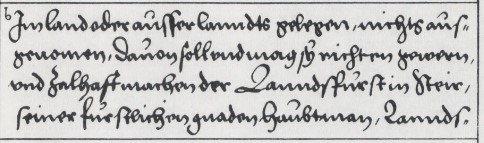 Im land oder ausser lanndts gelegen, nichts aus-
genomen, dauon soll vnd mag sy richten gewern,
vnd zalhafft machen der Lanndsfürst in Steir,
seiner fürstlichen gnaden haubtman, Lannds-